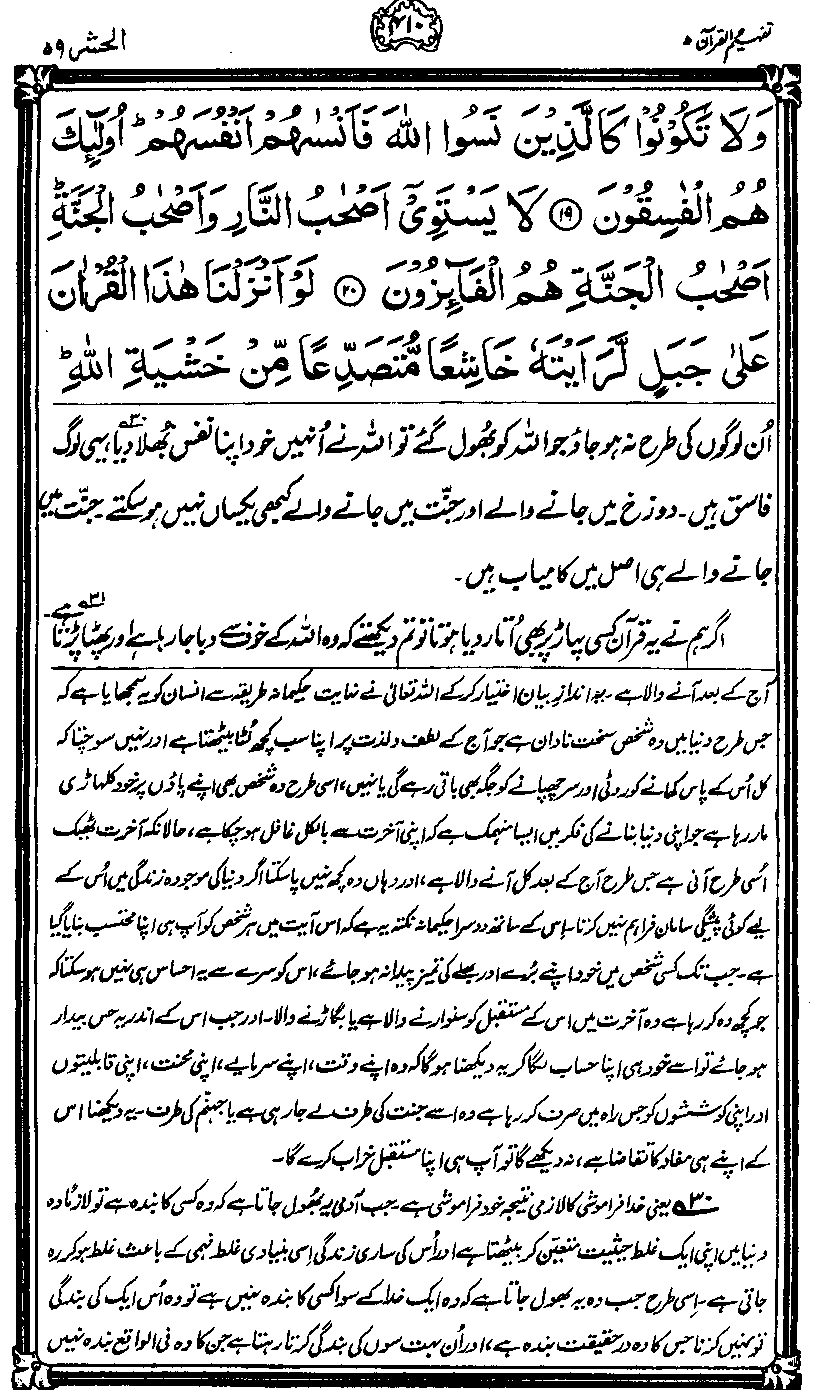 تفہیم القرآن ۵
۴۱۰
الحشر ۵۹
وَلَا تَكُوْنُوْا كَالَّذِيْنَ نَسُوا اللّٰهَ فَاَنْسٰىهُمْ اَنْفُسَهُمْ ؕ اُولٰٓئِكَ
هُمُ الْفٰسِقُوْنَ ﴿۱۹﴾ لَا يَسْتَوِيْٓ اَصْحٰبُ النَّارِ وَاَصْحٰبُ الْجَنَّةِ ؕ
اَصْحٰبُ الْجَنَّةِ هُمُ الْفَآئِزُوْنَ ﴿۲۰﴾ لَوْ اَنْزَلْنَا هٰذَا الْقُرْاٰنَ
عَلٰى جَبَلٍ لَّرَاَيْتَهٗ خَاشِعًا مُّتَصَدِّعًا مِّنْ خَشْيَةِ اللّٰهِ ؕ
اُن لوگوں کی طرح نہ ہو جاؤ جو اللہ کو بھُول گئے تو اللہ نے اُنہیں خود اپنا نفس بھُلا دیا،۳۰ یہی لوگ
فاسق ہیں۔ دوزخ میں جانے والے اور جنّت میں جانے والے کبھی یکساں نہیں ہو سکتے۔ جنّت میں
جانے والے ہی اصل میں کامیاب ہیں۔
اگر ہم نے یہ قرآن کسی پہاڑ پر بھی اُتار دیا ہوتا تو تم دیکھتے کہ وہ اللہ کے خوف سے دبا جا رہا ہے اور پھٹا پڑتا ہے۔۳۱
آج کے بعد آنے والا ہے۔ یہ انداز بیان اختیار کر کے اللہ تعالیٰ نے نہایت حکیمانہ طریقہ سے انسان کو یہ سمجھایا ہے کہ
جس طرح دنیا میں وہ شخص سخت نادان ہے جو آج کے لطف و لذت پر اپنا سب کچھ لُٹا بیٹھتا ہے اور نہیں سوچتا کہ
کل اُس کے پاس کھانے کو روٹی اور سر چھپانے کو جگہ بھی باقی رہے گی یا نہیں، اسی طرح وہ شخص بھی اپنے پاؤں پر خود کلہاڑی
مار رہا ہے جو اپنی دنیا بنانے کی فکر میں ایسا منہمک ہے کہ اپنی آخرت سے بالکل غافل ہو چکا ہے، حالانکہ آخرت ٹھیک
اُسی طرح آنی ہے جس طرح آج کے بعد کل آنے والا ہے، اور وہاں وہ کچھ نہیں پا سکتا اگر دنیا کی موجودہ زندگی میں اُس کے
لیے کوئی پیشگی سامان فراہم نہیں کرتا۔ اِس کے ساتھ دوسرا حکیمانہ نکتہ یہ ہے کہ اس آیت میں ہر شخص کو آپ ہی اپنا محتسب بنایا گیا
ہے۔ جب تک کسی شخص میں خود اپنے بُرے اور بھلے کی تمیز پیدا نہ ہو جائے، اس کو سرے سے یہ احساس ہی نہیں ہو سکتا کہ
جو کچھ وہ کر رہا ہے وہ آخرت میں اس کے مستقبل کو سنوارنے والا ہے یا بگاڑنے والا۔ اور جب اس کے اندر یہ حس بیدار
ہو جائے تو اسے خود ہی اپنا حساب لگا کر یہ دیکھنا ہوگا کہ وہ اپنے وقت، اپنے سرمایے، اپنی محنت، اپنی قابلیتوں
اور اپنی کوششوں کو جس راہ میں صرف کر رہا ہے وہ اسے جنت کی طرف لے جا رہی ہے یا جہنّم کی طرف۔ یہ دیکھنا اس
کے اپنے ہی مفاد کا تقاضا ہے، نہ دیکھے گا تو آپ ہی اپنا مستقبل خراب کرے گا۔
۳۰ یعنی خدا فراموشی کا لازمی نتیجہ خود فراموشی ہے۔ جب آدمی یہ بھُول جاتا ہے کہ وہ کسی کا بندہ ہے تو لازماً وہ
دنیا میں اپنی ایک غلط حیثیت متعیّن کر بیٹھتا ہے اور اُس کی ساری زندگی اِسی بنیادی غلط فہمی کے باعث غلط ہو کر رہ
جاتی ہے۔ اِسی طرح جب وہ یہ بھول جاتا ہے کہ وہ ایک خدا کے سوا کسی کا بندہ نہیں ہے تو وہ اُس ایک کی بندگی
تو نہیں کرتا جس کا وہ درحقیقت بندہ ہے، اور اُن بہت سوں کی بندگی کرتا رہتا ہے جن کا وہ فی الواقع بندہ نہیں